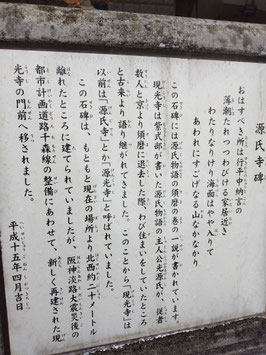 源氏寺碑
おはすべき所は行平中納言の
藻潮たれつつわびける家居近き
わたりなりけり海面はやや入りて
あわれにすごげなる山なかなり
この石碑には源氏物語の須磨の巻の一説が書かれています。
現光寺は紫式部が書いた源氏物語の主人公光源氏が、従者
数人と京より須磨に退去した際、わび住まいをしていたところ
と古来より語り継がれてきました。このことから「現光寺」は
以前は「源氏寺」とか「源光寺」と呼ばれていました。
この石碑は、もともと現在の場所より北西約二十メートル
離れたところに建てられていましたが、阪神淡路大震災後の
都市計画道路千森線の整備にあわせて、新しく再建された現
光寺の門前へ移されました。
平成十五年四月吉日